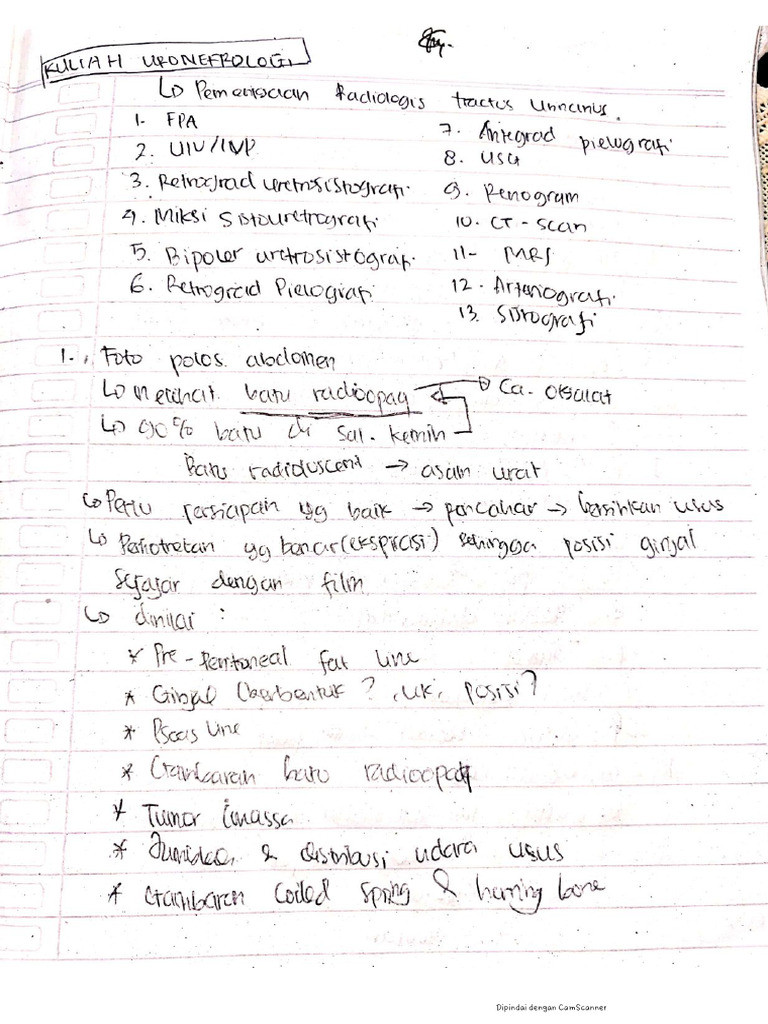 KULIAH URONEFROLOGI
↳ Pemeriksaan Radiologis tractus Urinarius.
1. FPA
2. UIV/IVP
3. Retrograd uretrosistografi
4. Miksi Sistouretrografi
5. Bipoler uretrosistografi
6. Retrograd Pielografi
7. Antegrad pielografi
8. USG
9. Renogram
10. CT-scan
11- MRI
12. Arteriografi
13. Sistografi
1. Foto polos abdomen
↳ melihat batu radioopaq → Ca. Oksalat
↳ 90% batu di Sal. kemih
Batu radioluscent → asam urat
↳ Perlu persiapan yg baik → pencahar → bersihkan usus
↳ Pemotretan yg benar (ekspirasi) sehingga posisi ginjal
sejajar dengan film
↳ dinilai :
* Pre-Peritoneal fat line
* Ginjal (berbentuk? , uk, posisi?
* Psoas line
* Gambaran batu radioopak
* Tumor / massa
* Jumlah & distribusi udara usus
* Gambaran Coiled Spring & herring bone
Dipindai dengan CamScanner